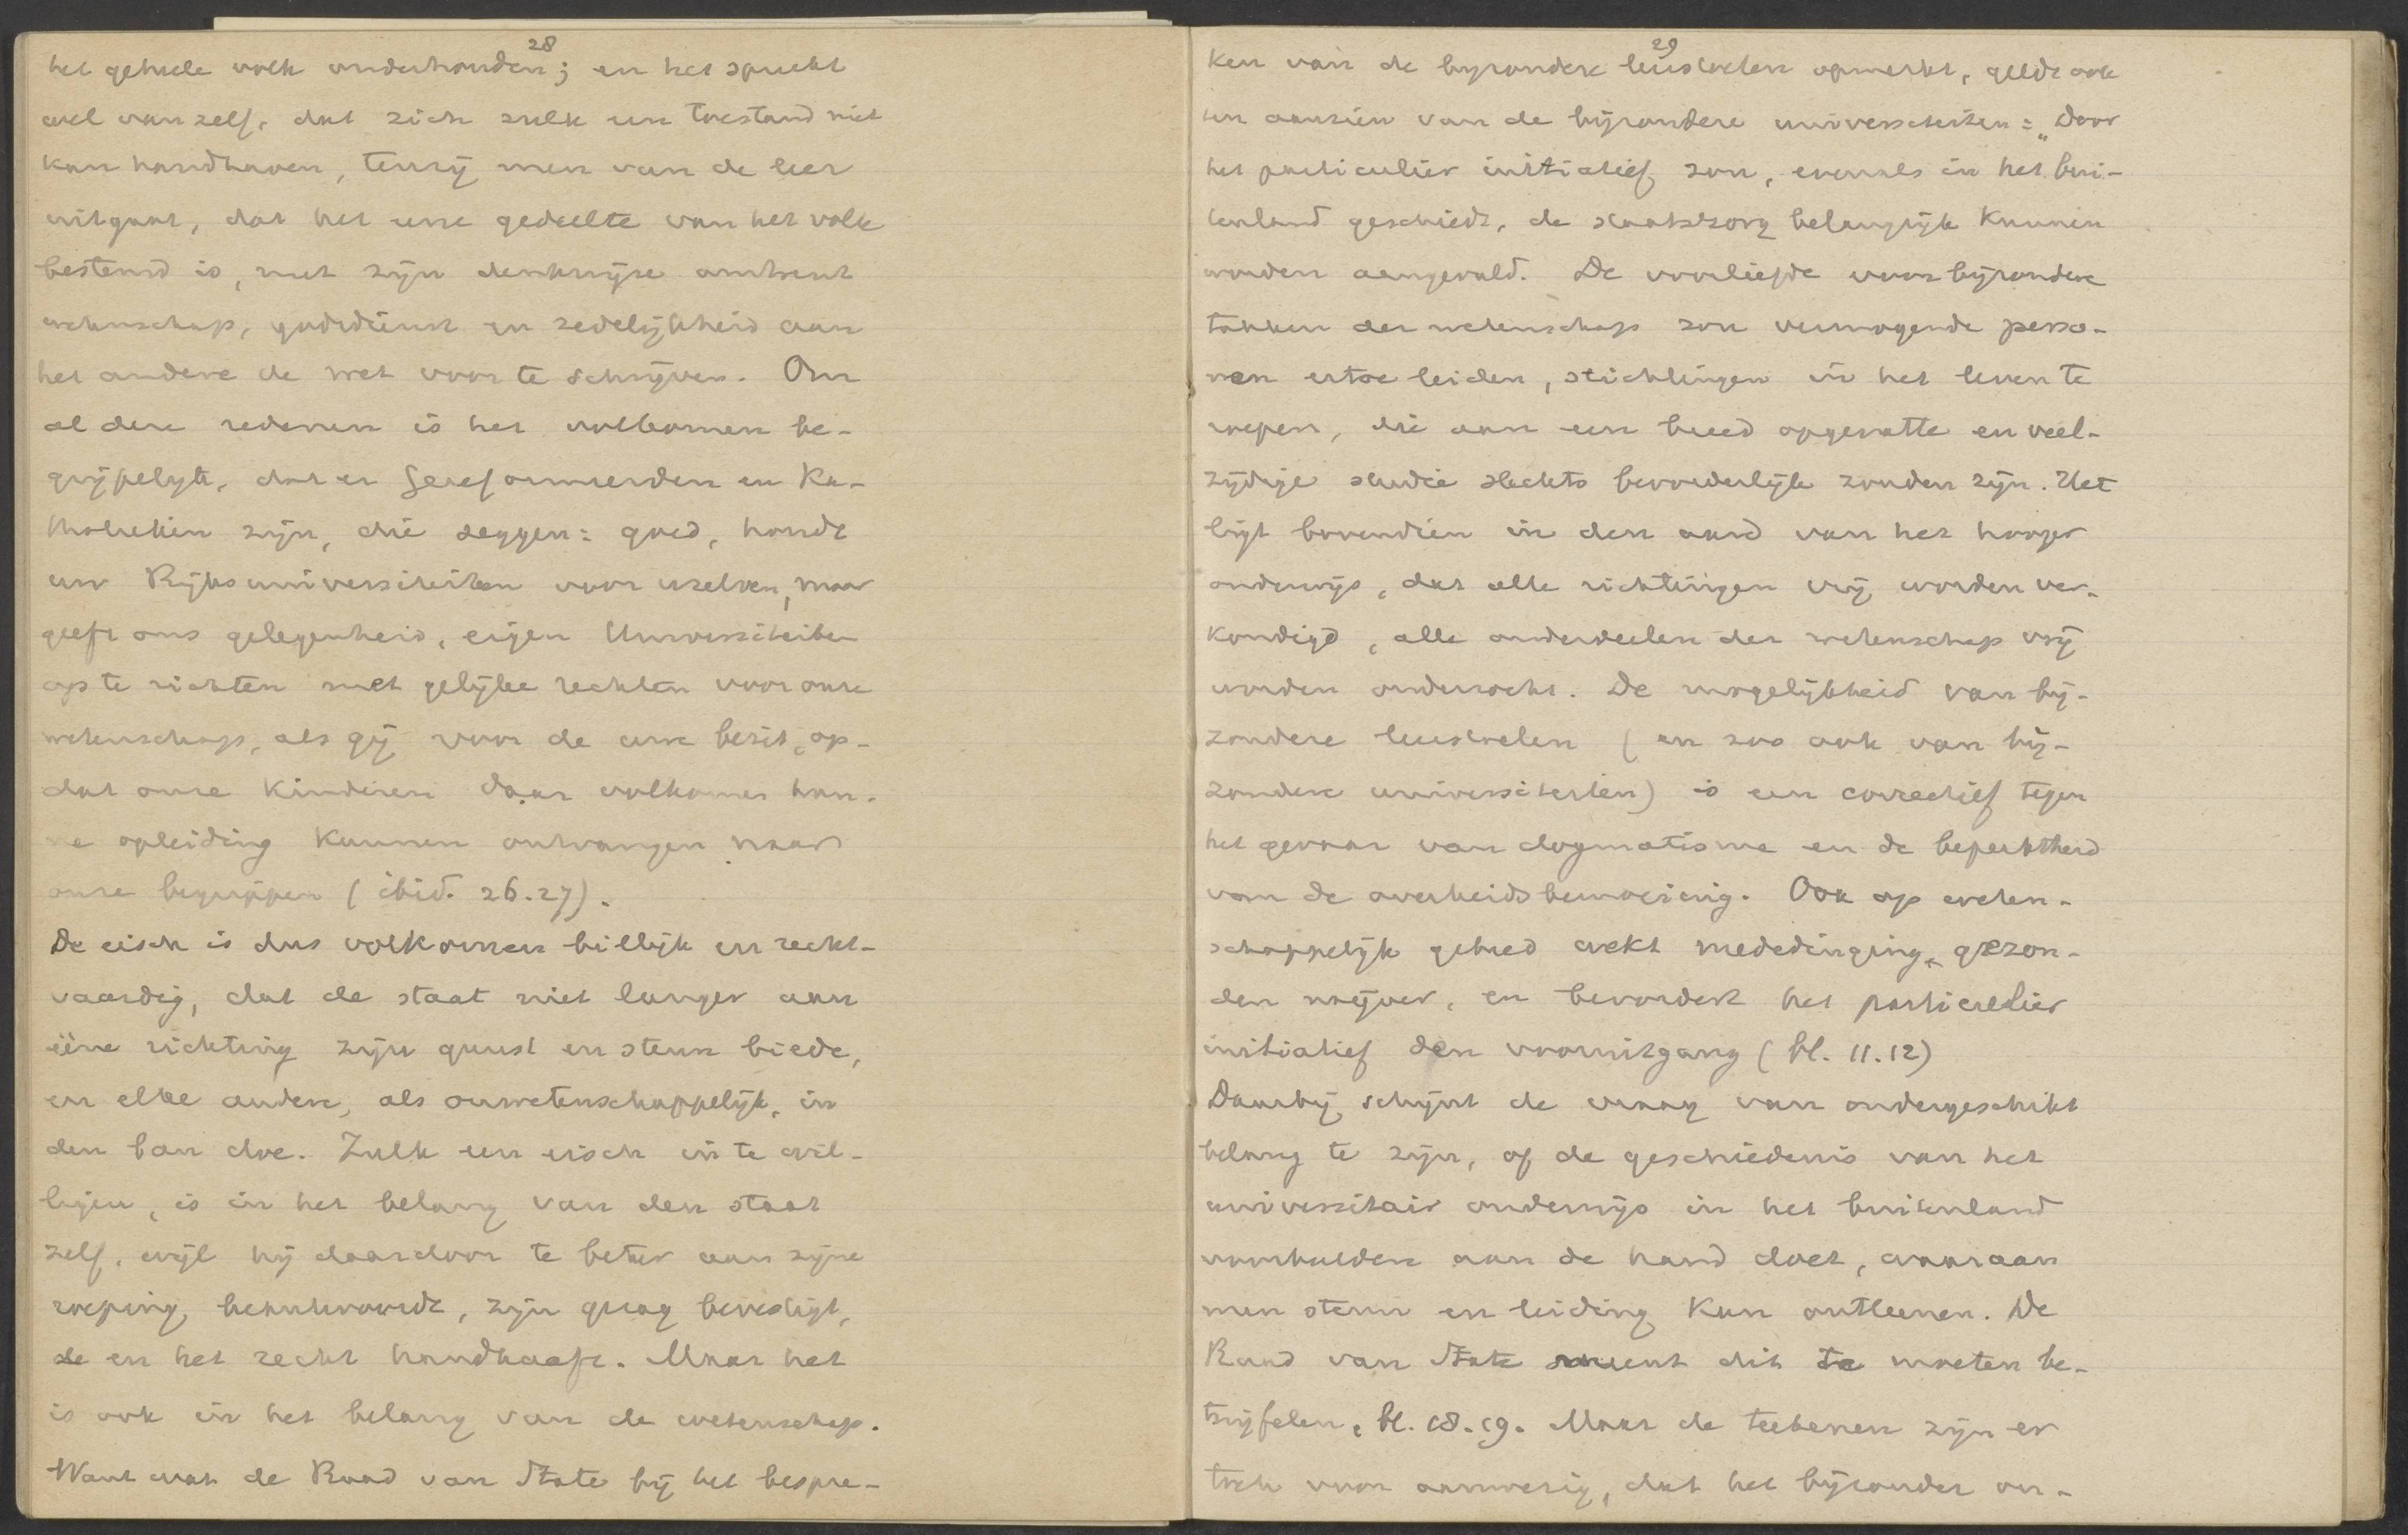 28
het geheele volk onderhouden; en het spreekt
wel van zelf, dat zich zulk een toestand niet
kan handhaven, tenzij men van de leer
uitgaat, dat het eene gedeelte van het volk
bestemd is, met zijn denkwijze omtrent
wetenschap, godsdienst en zedelijkheid aan
het andere de wet voor te schrijven. Om
al deze redenen is het volkomen be-
grijpelijk, dat er Gereformeerden en Ka-
tholieken zijn, die zeggen: goed, houdt
uw Rijksuniversiteiten voor uzelven, maar
geeft ons gelegenheid, eigen Universiteiten
op te richten met gelijke rechten voor onze
wetenschap, als gij voor de uwe bezit, op-
dat onze kinderen daar volkomen hun-
ne opleiding kunnen ontvangen naar
onze begrippen (ibid. 26.27).
De eisch is dus volkomen billijk en recht-
vaardig, dat de staat niet langer aan
ééne richting zijn gunst en steun biede,
en elke andere, als onwetenschappelijk, in
den ban doe. Zulk een eisch in te wil-
ligen, is in het belang van den staat
zelf, wijl hij daardoor te beter aan zijne
roeping beantwoordt, zijn gezag bevestigt,
de en het recht handhaaft. Maar het
is ook in het belang van de wetenschap.
Want wat de Raad van State bij het bespre-
29
ken van de bijzondere leerstoelen opmerkt, geldt ook
ten aanzien van de bijzondere universiteiten: „Door
het particulier initiatief zou, evenals in het bui-
tenland geschiedt, de staatszorg belangrijk kunnen
worden aangevuld. De voorliefde voor bijzondere
takken der wetenschap zou vermogende perso-
nen ertoe leiden, stichtingen in het leven te
roepen, die aan een breed opgevatte en veel-
zijdige studie slechts bevorderlijk zouden zijn. Het
ligt bovendien in den aard van het hooger
onderwijs, dat alle richtingen vrij worden ver-
kondigd, alle onderdeelen der wetenschap vrij
worden onderzocht. De mogelijkheid van bij-
zondere leerstoelen (en zoo ook van bij-
zondere universiteiten) is een correctief tegen
het gevaar van dogmatisme en de beperktheid
van de overheidsbemoeiing. Ook op weten-
schappelijk gebied wekt mededinging gezon-
den naijver, en bevordert het particulier
initiatief den vooruitgang (bl. 11.12)
Daarbij schijnt de vraag van ondergeschikt
belang te zijn, of de geschiedenis van het
universitair onderwijs in het buitenland
voorbeelden aan de hand doet, waaraan
men steun en leiding kan ontleenen. De
Raad van State meent dit te moeten be-
twijfelen, bl. 18.19. Maar de teekenen zijn er
toch voor aanwezig, dat het bijzonder on-